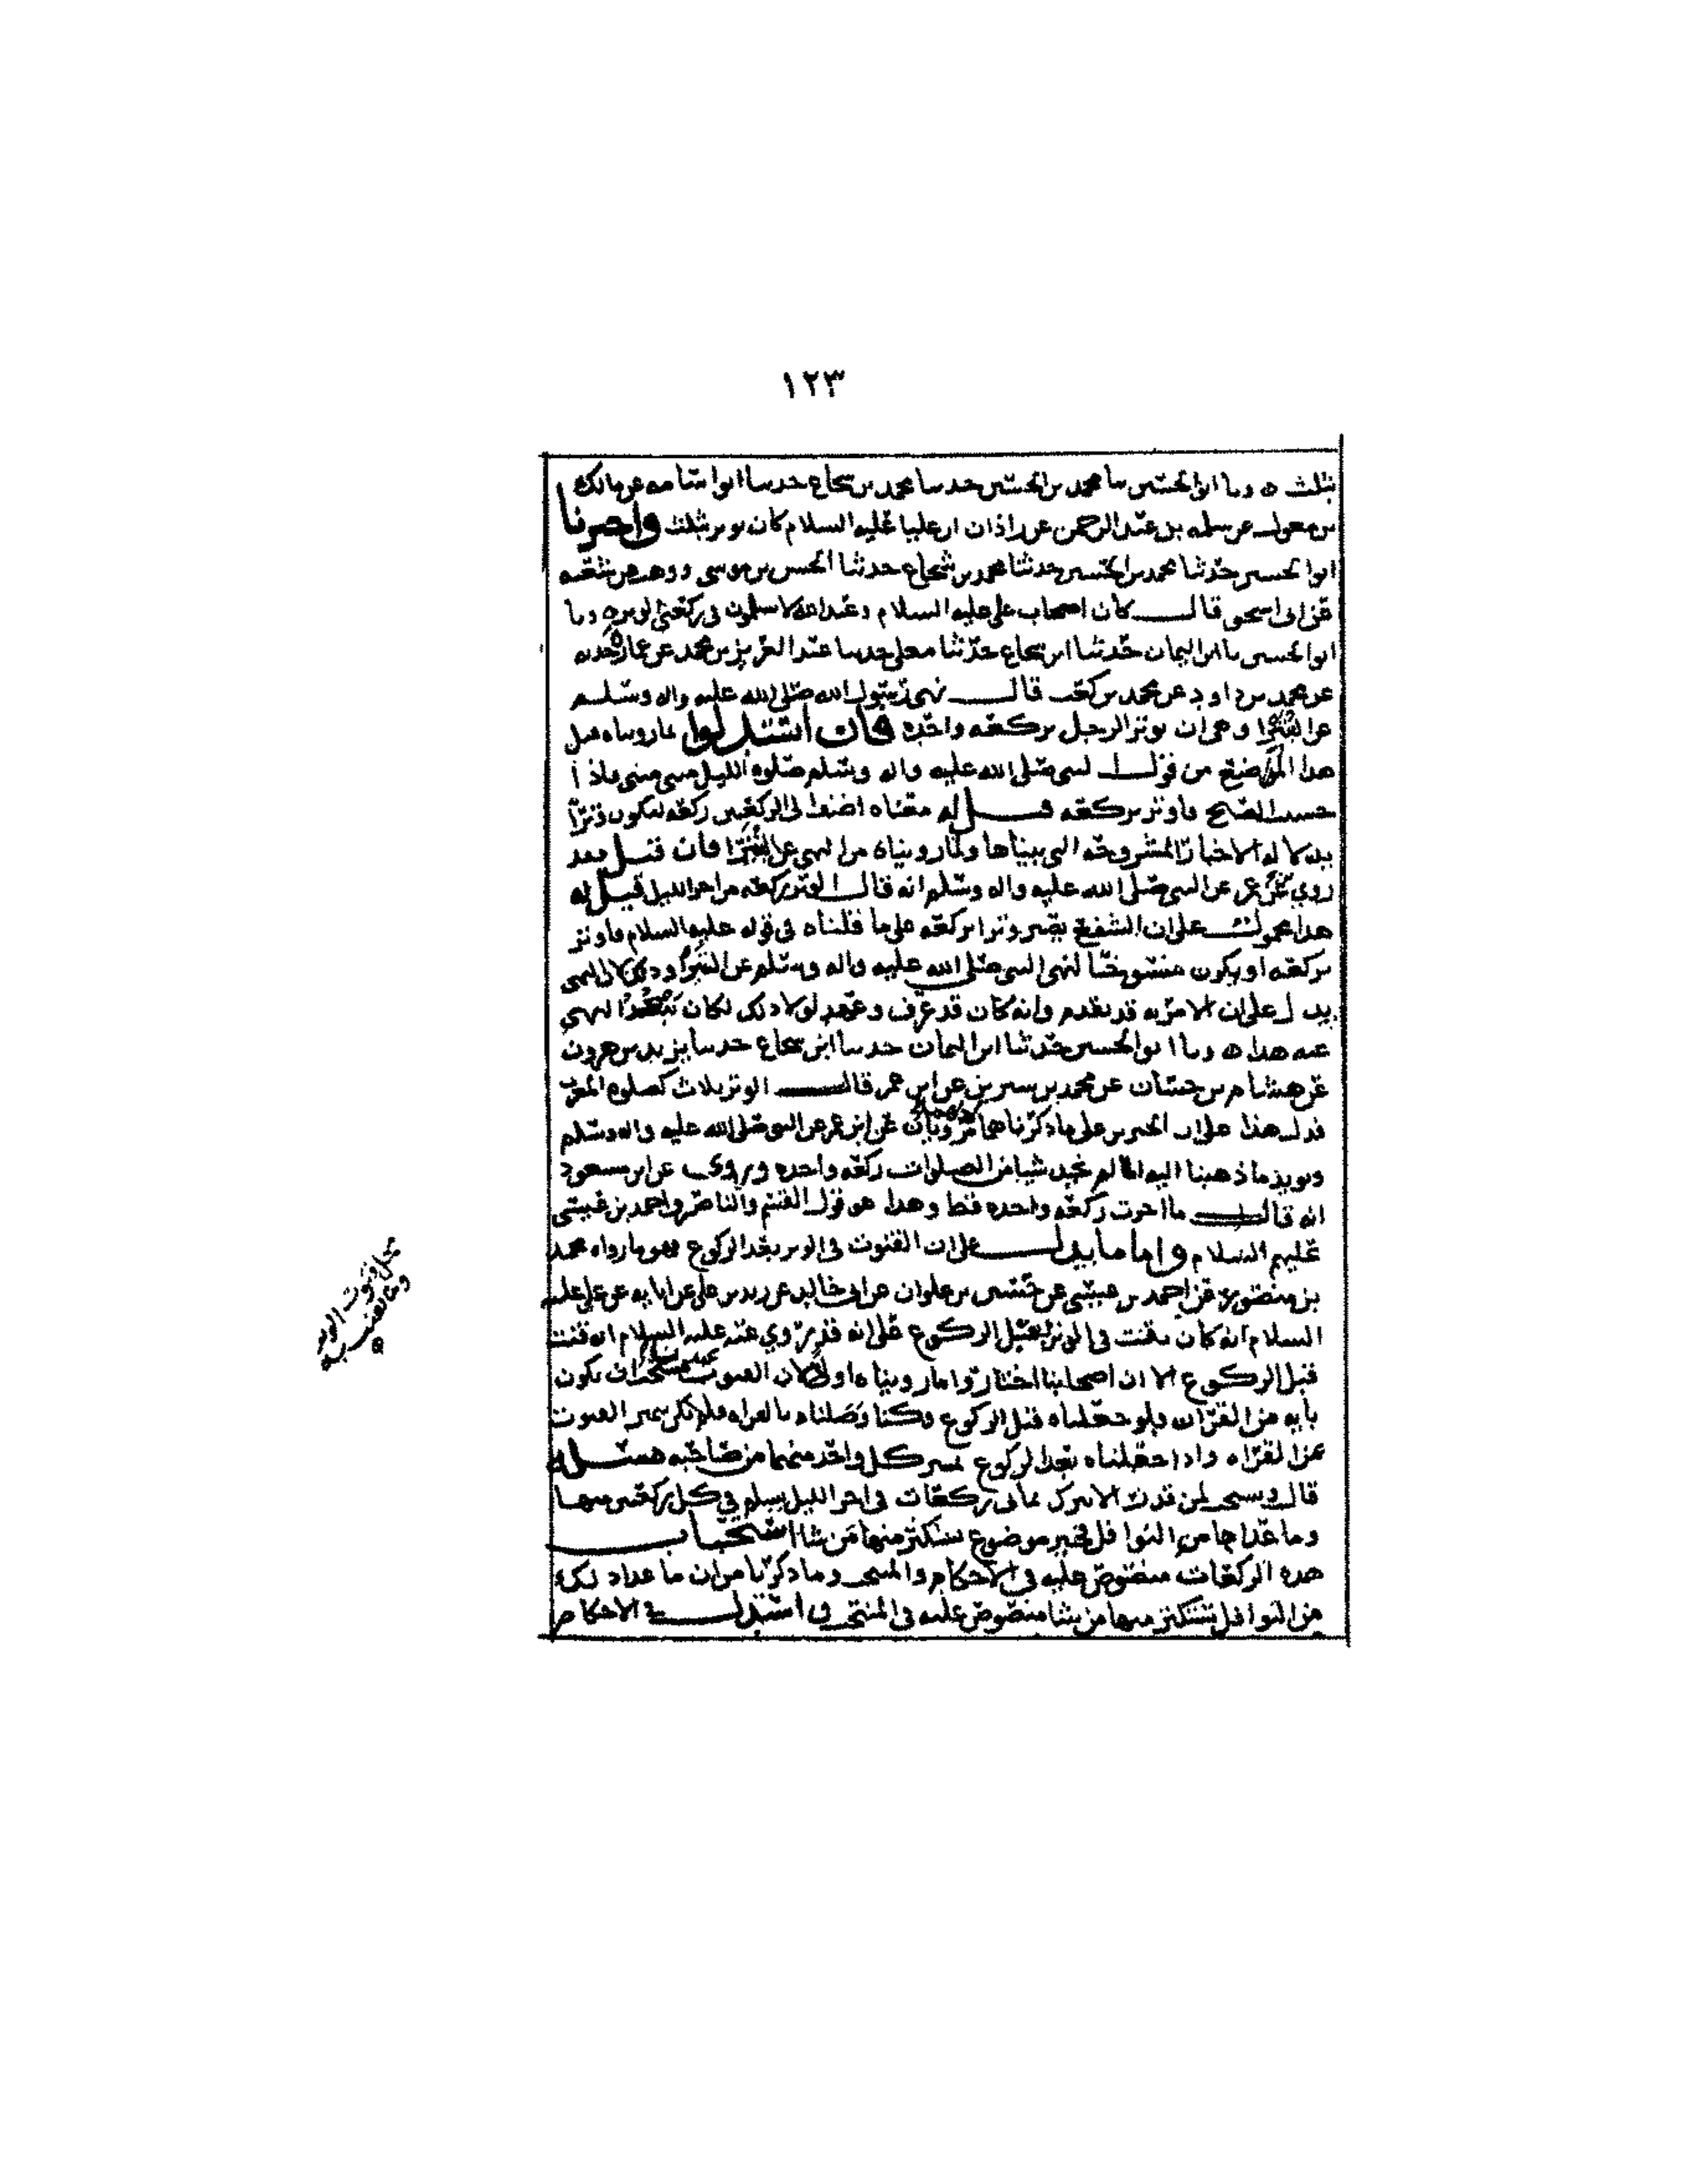 ١٢٣
بثلث ه وما ابوا الحسين ما محمد بن الحسين حدسا محمد بن سجاع حدسا ابوا سامه عن مالك
بن معول عن سلمه بن عبد الرحمن عن زاذان ان عليا عليه السلام كان يوتر بثلث واخبرنا
ابوا الحسين حدثنا محمد بن الحسين حدثنا محمد بن شجاع حدثنا الحسن بن موسى ووهب عن شعبه
عن ابى اسحق قال كان اصحاب علي عليه السلام وعبد الله لا يسلمون في ركعتي الوتر ه وما
ابوا الحسين ما ابن اليمان حدثنا ابن سجاع حدثنا معلى حدسا عبد العزيز بن محمد عن عماره
عن محمد بن داود عن محمد بن كعب قال نهى رسول الله صلى الله عليه واله وسلم
عن البتيرا وهي ان يوتر الرجل بركعه واحده فان استدلوا بما رويناه قبل
هذا الموضع من قول النبي صلى الله عليه واله وسلم صلوه الليل مثنى مثنى فاذا
خشيت الصبح فاوتر بركعه قيل له معناه اضف الى الركعتين ركعه لتكون وترا
بدلاله الاخبار المشروحه التي بيناها ولما رويناه من النهي عن البتيرا فان قيل فقد
روي عن عمر عن النبي صلى الله عليه واله وسلم انه قال الوتر ركعه من اخر الليل قيل له
هذا محمول على ان الشفع يصير وترا بركعه على ما قلناه في قوله عليه السلام فاوتر
بركعه او يكون منسوخا لنهي النبي صلى الله عليه واله وسلم عن البتيرا وذلك ان النهي
يدل على ان الامر به قد تقدم وانه كان قد عرف وعهد لولا ذلك لكان يبعد النهي
عنه هذا ه وما ابوا الحسين حدثنا ابن اليمان حدسا ابن سجاع حدسا يزيد بن هرون
عن هشام بن حسان عن محمد بن سيرين عن ابن عمر قال الوتر ثلاث كصلوه المغرب
فدل هذا على ان الخبرين على ما ذكرنا هما مرويان عن ابن عمر عن النبي صلى الله عليه واله وسلم
ويويد ما ذهبنا اليه انا لم نجد شيا من الصلوات ركعه واحده ويروى عن ابن مسعود
انه قال ما اجزت ركعه واحده قط وهذا هو قول القسم والناصر واحمد بن عيسى
عليهم السلام واما ما يدل على ان القنوت في الوتر بعد الركوع فهو ما رواه محمد
بن منصور عن احمد بن عيسى عن حسين بن علوان عن ابي خالد عن زيد بن علي عن ابايه عن علي عليه
السلام انه كان يقنت في الوتر بعد الركوع على انه قد روي عنه عليه السلام انه قنت
قبل الركوع الا ان اصحابنا اختاروا ما رويناه اولا لان القنوت عندنا يستحب ان يكون
بايه من القران فلو جعلناه قبل الركوع لكنا وصلناه بالقراه فلم يكن يتميز القنوت
عن القراه واذا جعلناه بعد الركوع تميز كل واحد منهما من صاحبه مسئله
قال ويستحب لمن قدر ان لا يترك ثماني ركعات في اخر الليل يسلم في كل ركعتين منها
وما عدا ها من النوافل فخير موضوع يستكثر منها من شا استحباب
هذه الركعات منصوص عليه في الاحكام والمنتخب وما ذكرنا من ان ما عدا ذلك
من النوافل يستكثر منها من شا منصوص عليه في المنتخب استدل في الاحكام
محل قنوت الوتر
وما يقنت به